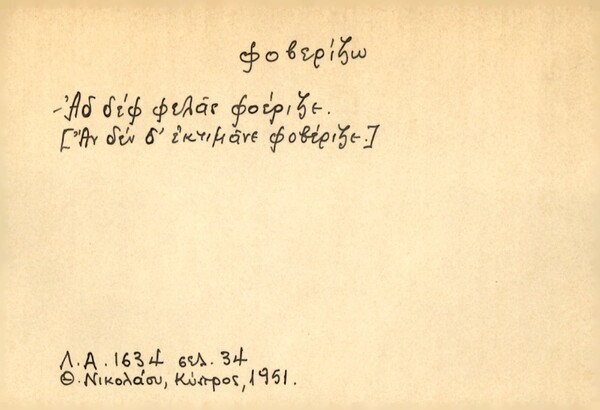 φοβερίζω
-Ἀδ δέφ φελᾶς φοέριζε.
[Ἄν δέν δ' ἐκτιμᾶνε φοβέριζε.]
Λ.Α. 1634 σελ. 34
Θ. Νικολάου, Κύπρος, 1951.